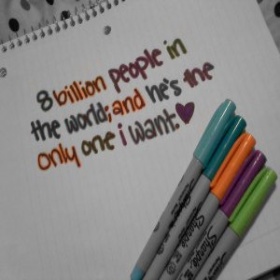 8 billion people in
the world; and he's the
only one i want.
Sharpie
Sharpie